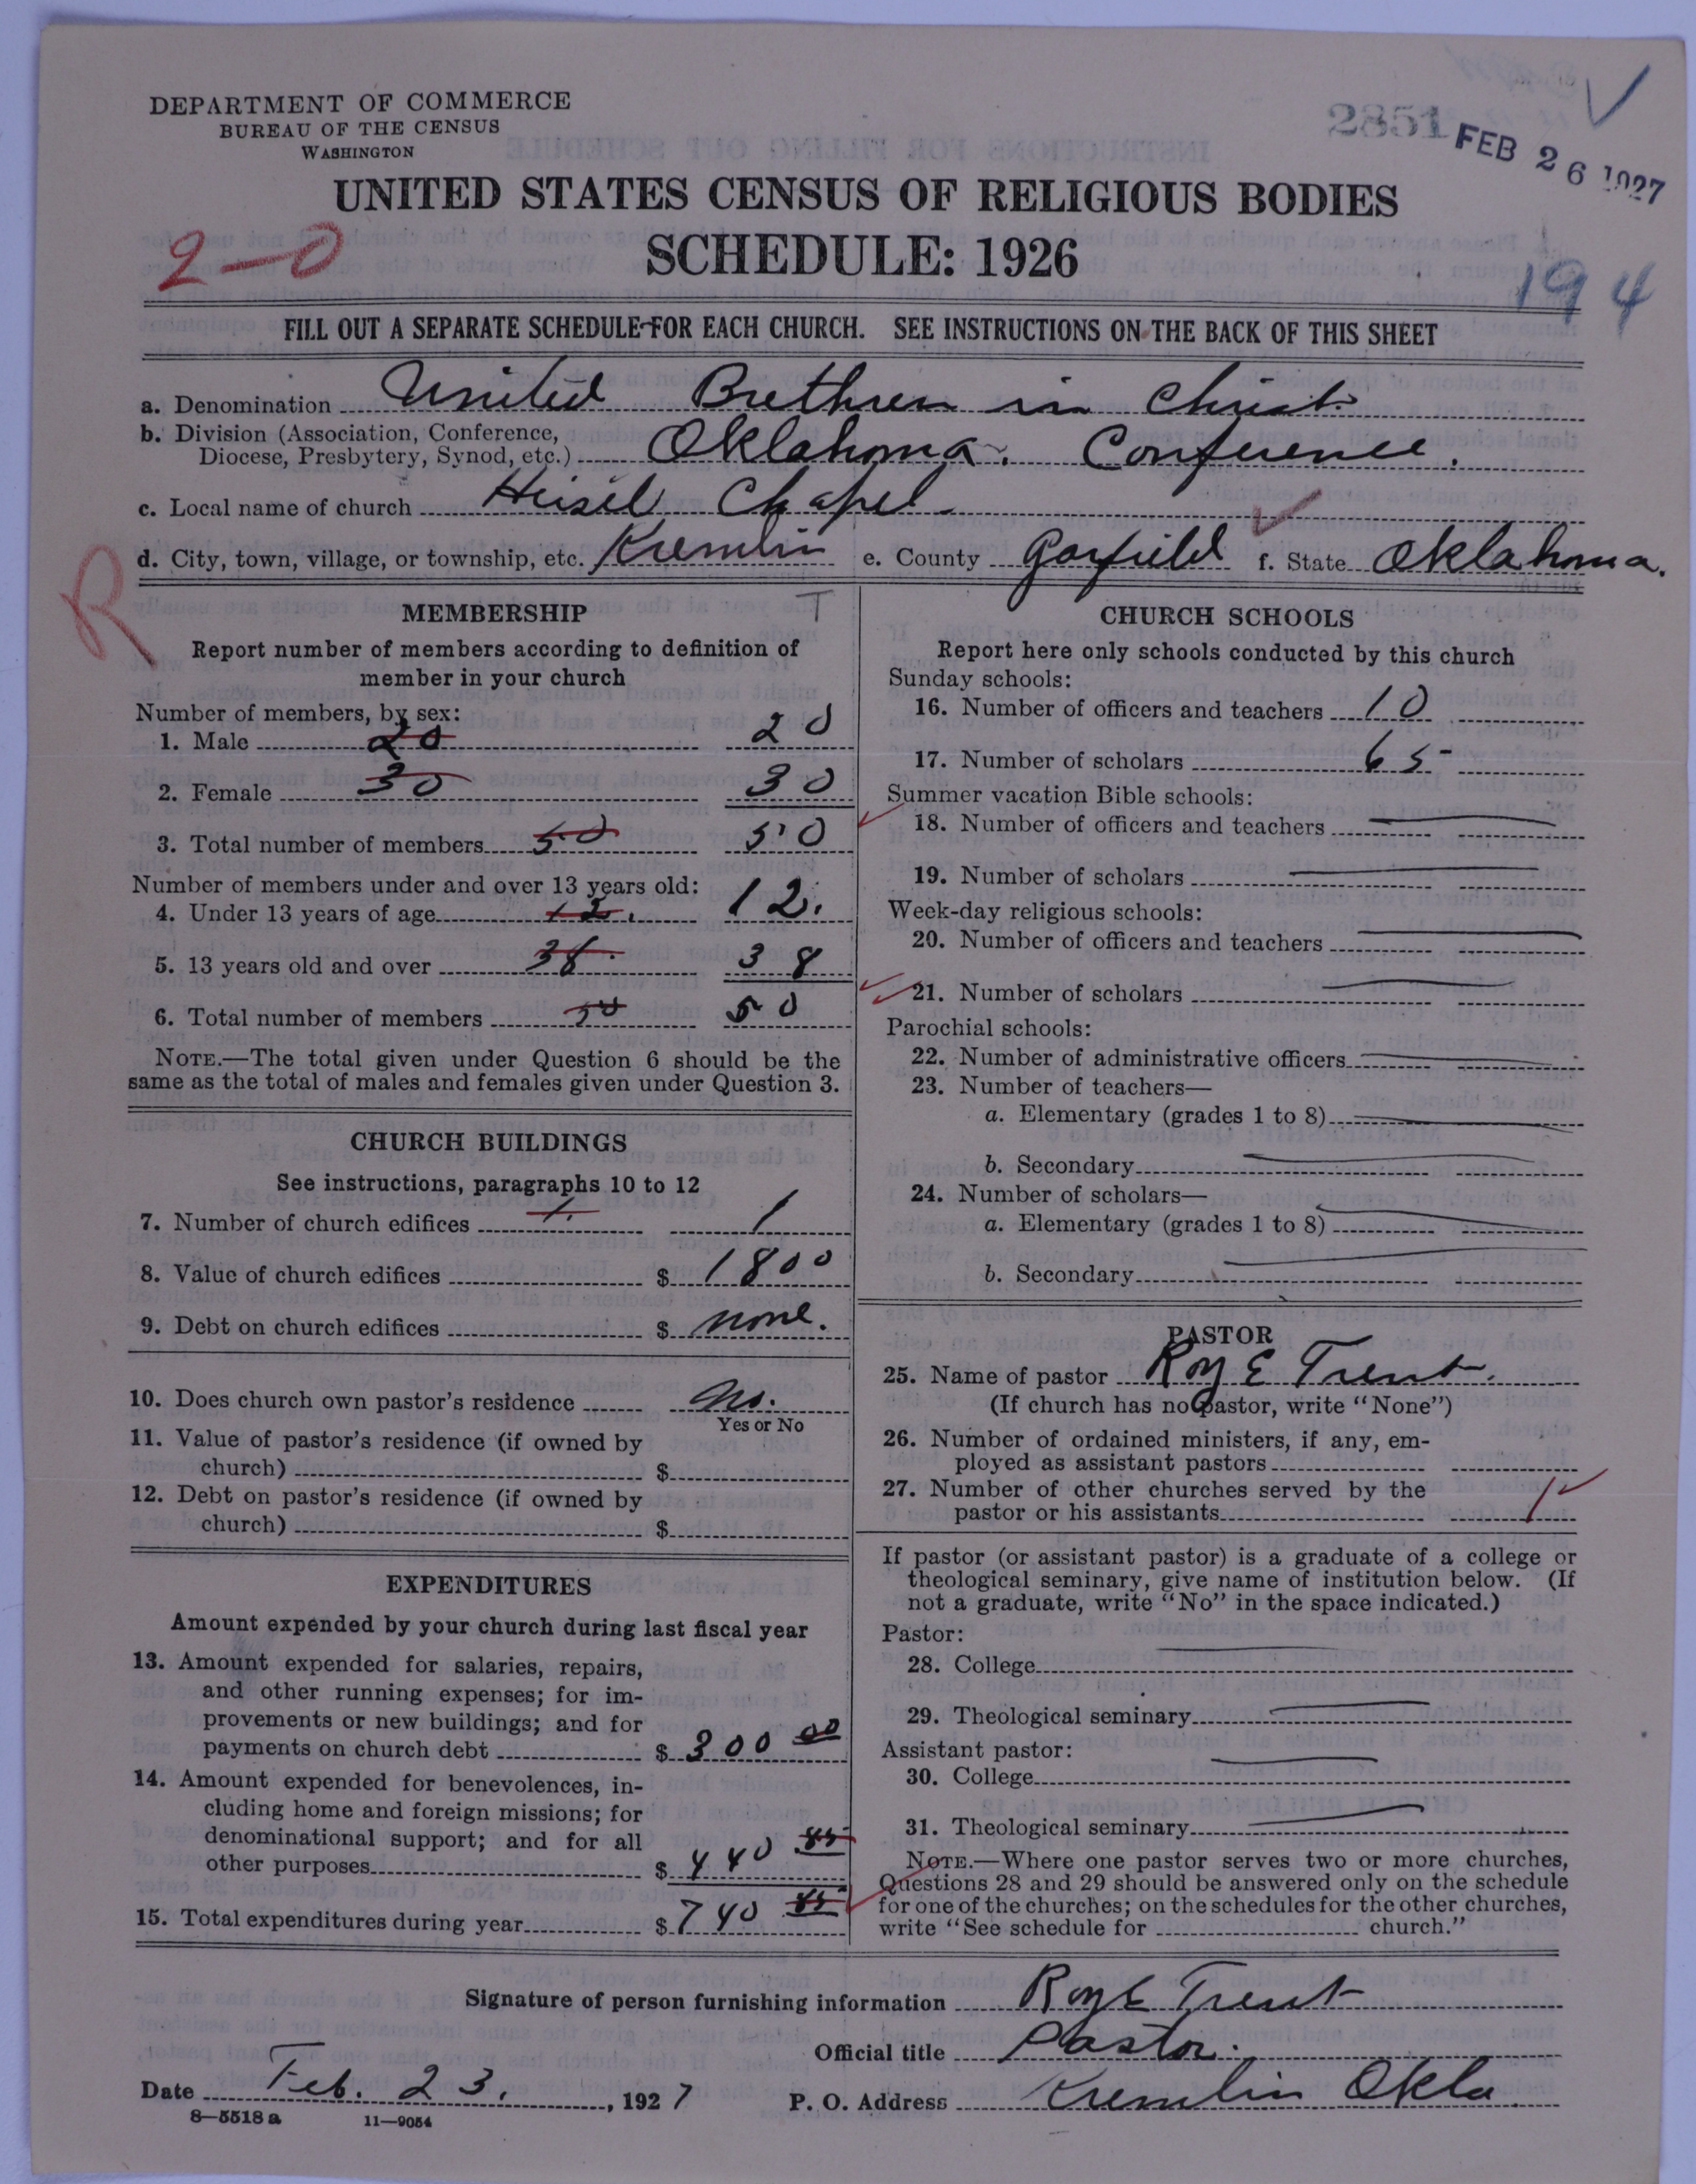 DEPARTMENT OF COMMERCE
BUREAU OF THE CENSUS
WASHINGTON
2851
FEB 26 1927
UNITED STATES CENSUS OF RELIGIOUS BODIES
SCHEDULE: 1926
2-0
194
FILL OUT A SEPARATE SCHEDULE FOR EACH CHURCH. SEE INSTRUCTIONS ON THE BACK OF THIS SHEET
a. Denomination United Brethren in Christ.
b. Division (Association, Conference,
Diocese, Presbytery, Synod, etc.) Oklahoma. Conference.
c. Local name of church Heisel Chapel.
d. City, town, village, or township, etc. Kremlin e. County Garfield f. State Oklahoma.
R
MEMBERSHIP T
Report number of members according to definition of
member in your church
Number of members, by sex:
1. Male 20 20
2. Female 30 30
3. Total number of members 50 50
Number of members under and over 13 years old:
4. Under 13 years of age 12. 12.
5. 13 years old and over 38. 38
6. Total number of members 50 50
NOTE.—The total given under Question 6 should be the
same as the total of males and females given under Question 3.
CHURCH BUILDINGS
See instructions, paragraphs 10 to 12
7. Number of church edifices 1. 1
8. Value of church edifices $ 1800
9. Debt on church edifices $ none.
10. Does church own pastor's residence no.
Yes or No
11. Value of pastor's residence (if owned by
church) $
12. Debt on pastor's residence (if owned by
church) $
EXPENDITURES
Amount expended by your church during last fiscal year
13. Amount expended for salaries, repairs,
and other running expenses; for im-
provements or new buildings; and for
payments on church debt $ 300 00
14. Amount expended for benevolences, in-
cluding home and foreign missions; for
denominational support; and for all
other purposes $ 440 85
15. Total expenditures during year $ 740 85
CHURCH SCHOOLS
Report here only schools conducted by this church
Sunday schools:
16. Number of officers and teachers 10
17. Number of scholars 65
Summer vacation Bible schools:
18. Number of officers and teachers
19. Number of scholars
Week-day religious schools:
20. Number of officers and teachers
21. Number of scholars
Parochial schools:
22. Number of administrative officers
23. Number of teachers—
a. Elementary (grades 1 to 8)
b. Secondary
24. Number of scholars—
a. Elementary (grades 1 to 8)
b. Secondary
PASTOR
25. Name of pastor Roy E Trent.
(If church has no pastor, write "None")
26. Number of ordained ministers, if any, em-
ployed as assistant pastors
27. Number of other churches served by the
pastor or his assistants 1
If pastor (or assistant pastor) is a graduate of a college or
theological seminary, give name of institution below. (If
not a graduate, write "No" in the space indicated.)
Pastor:
28. College
29. Theological seminary
Assistant pastor:
30. College
31. Theological seminary
NOTE.—Where one pastor serves two or more churches,
Questions 28 and 29 should be answered only on the schedule
for one of the churches; on the schedules for the other churches,
write "See schedule for church."
Signature of person furnishing information Roy E Trent
Official title Pastor.
Date Feb. 23, 1927 P. O. Address Kremlin Okla.
8—5518 a 11—9054